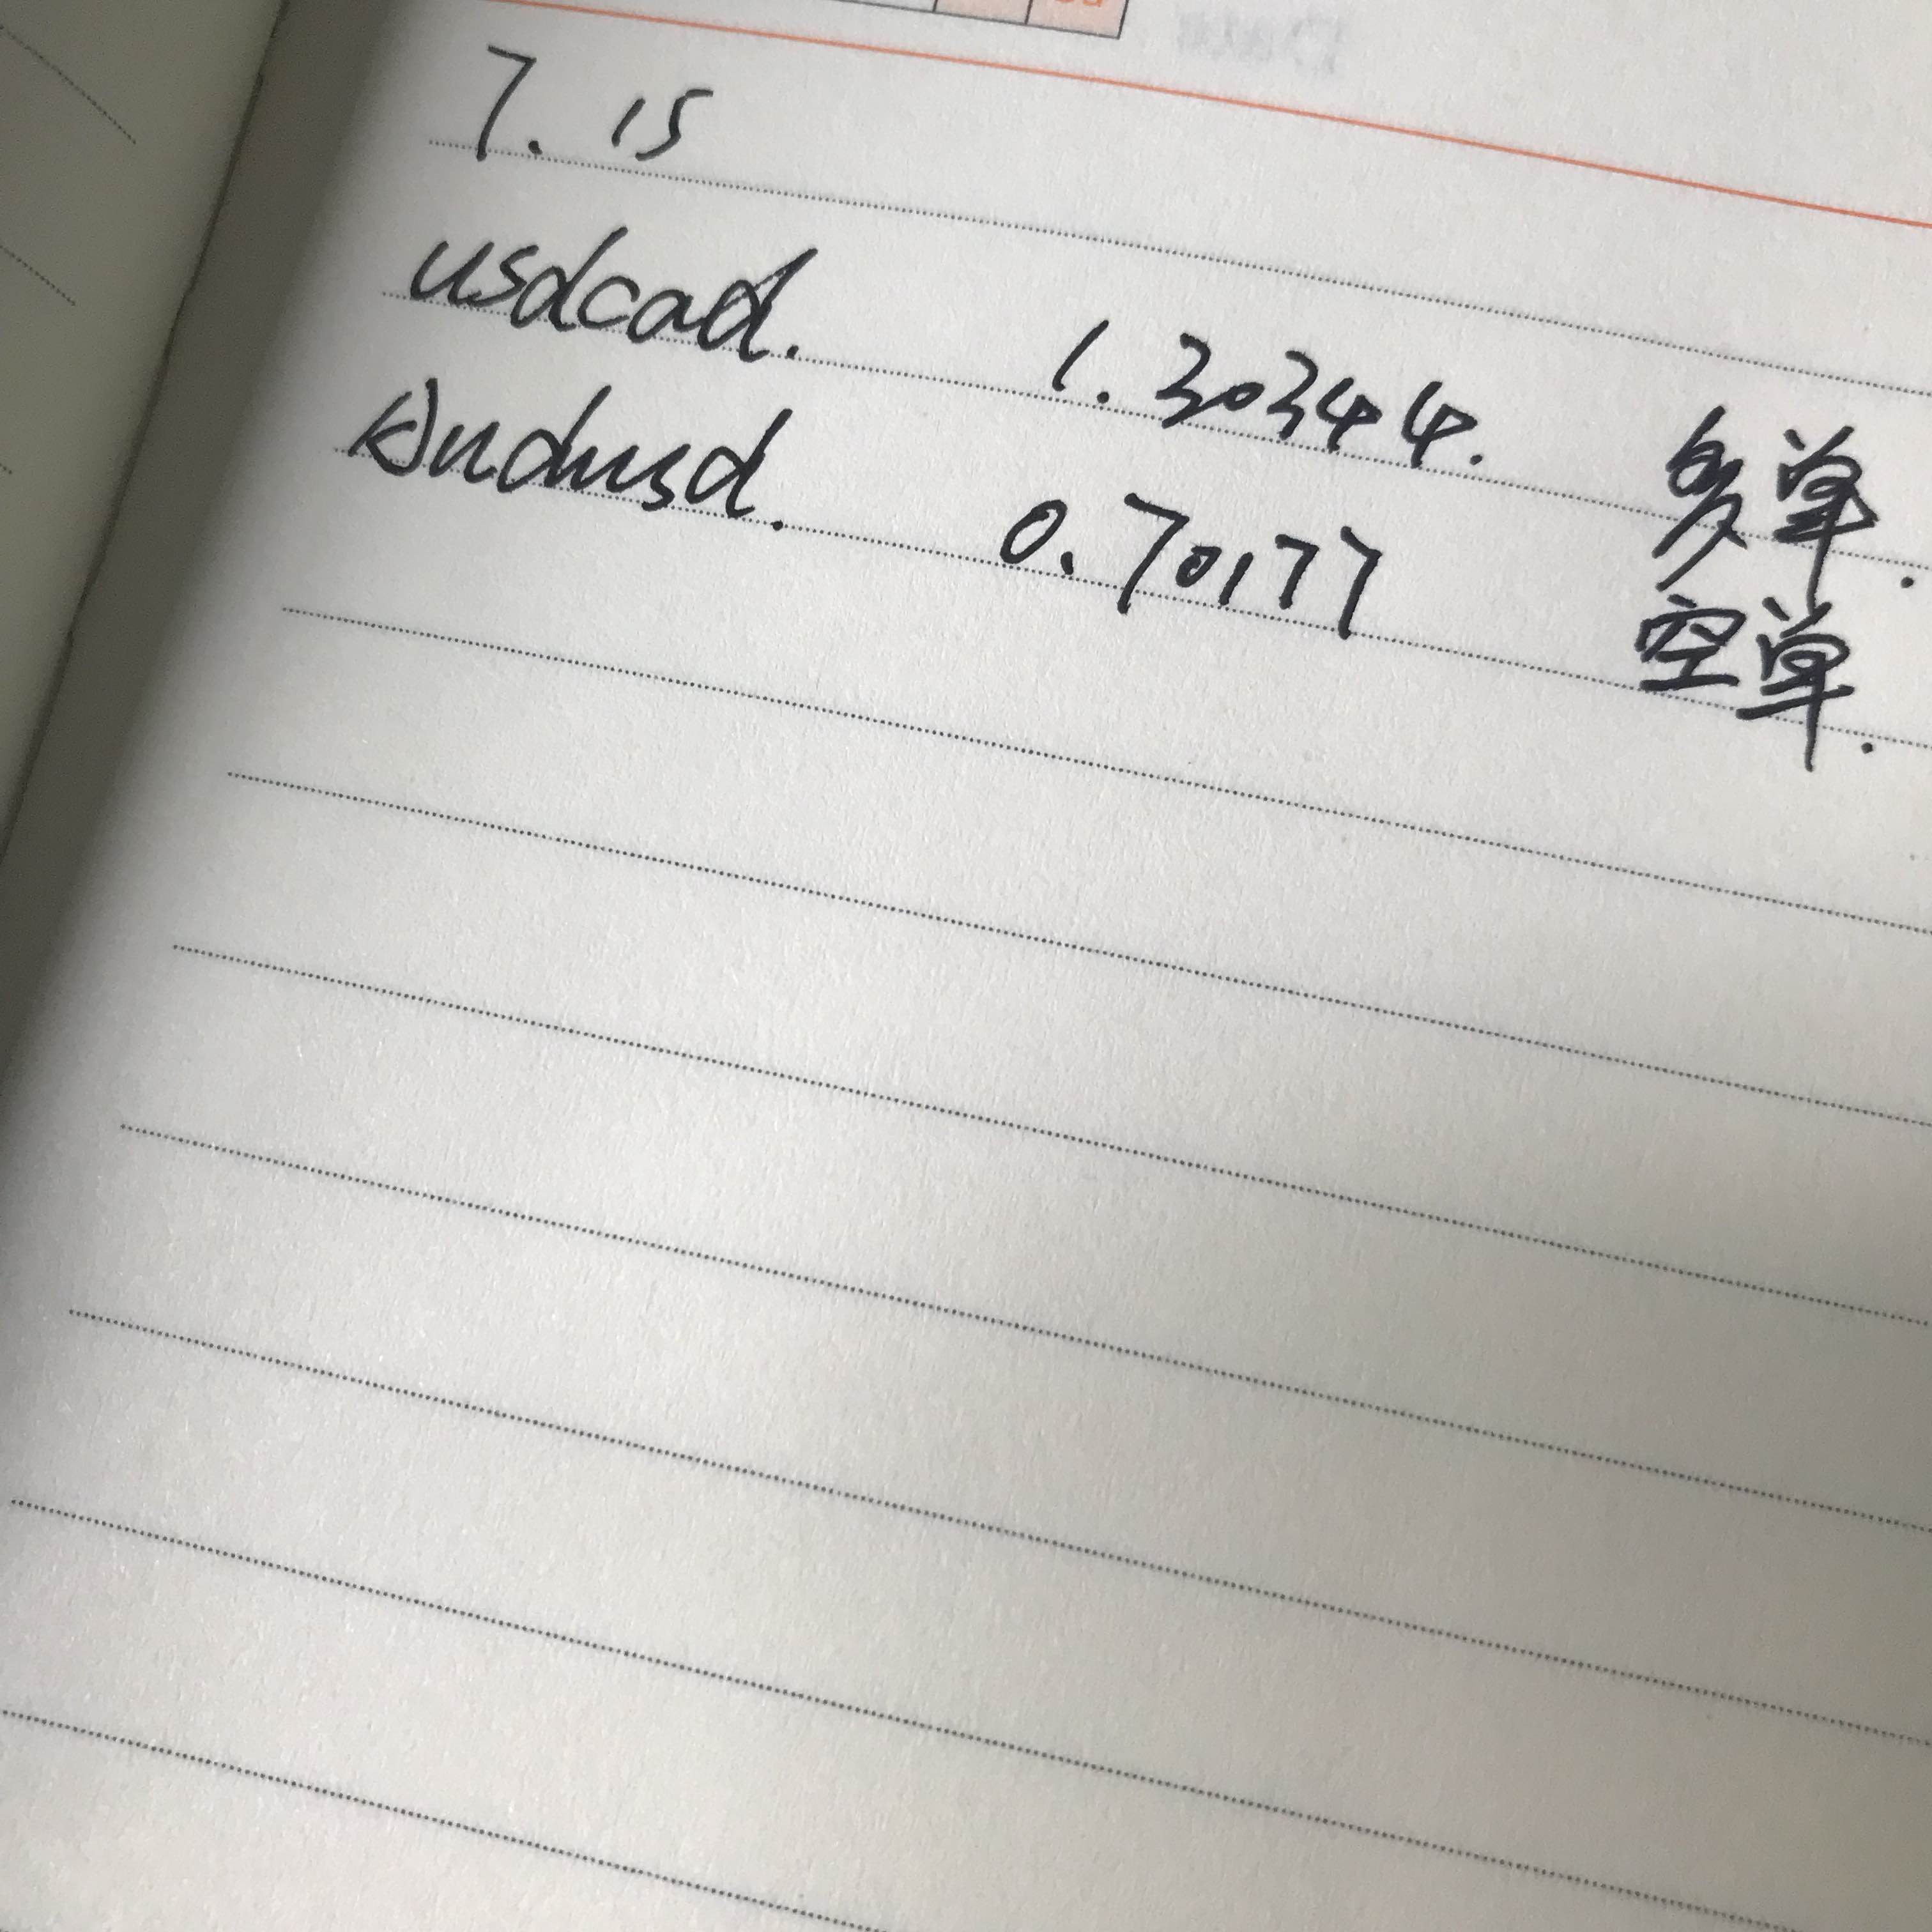 7.15
usdcad. 1.30344. 多单.
audusd. 0.70177 空单.